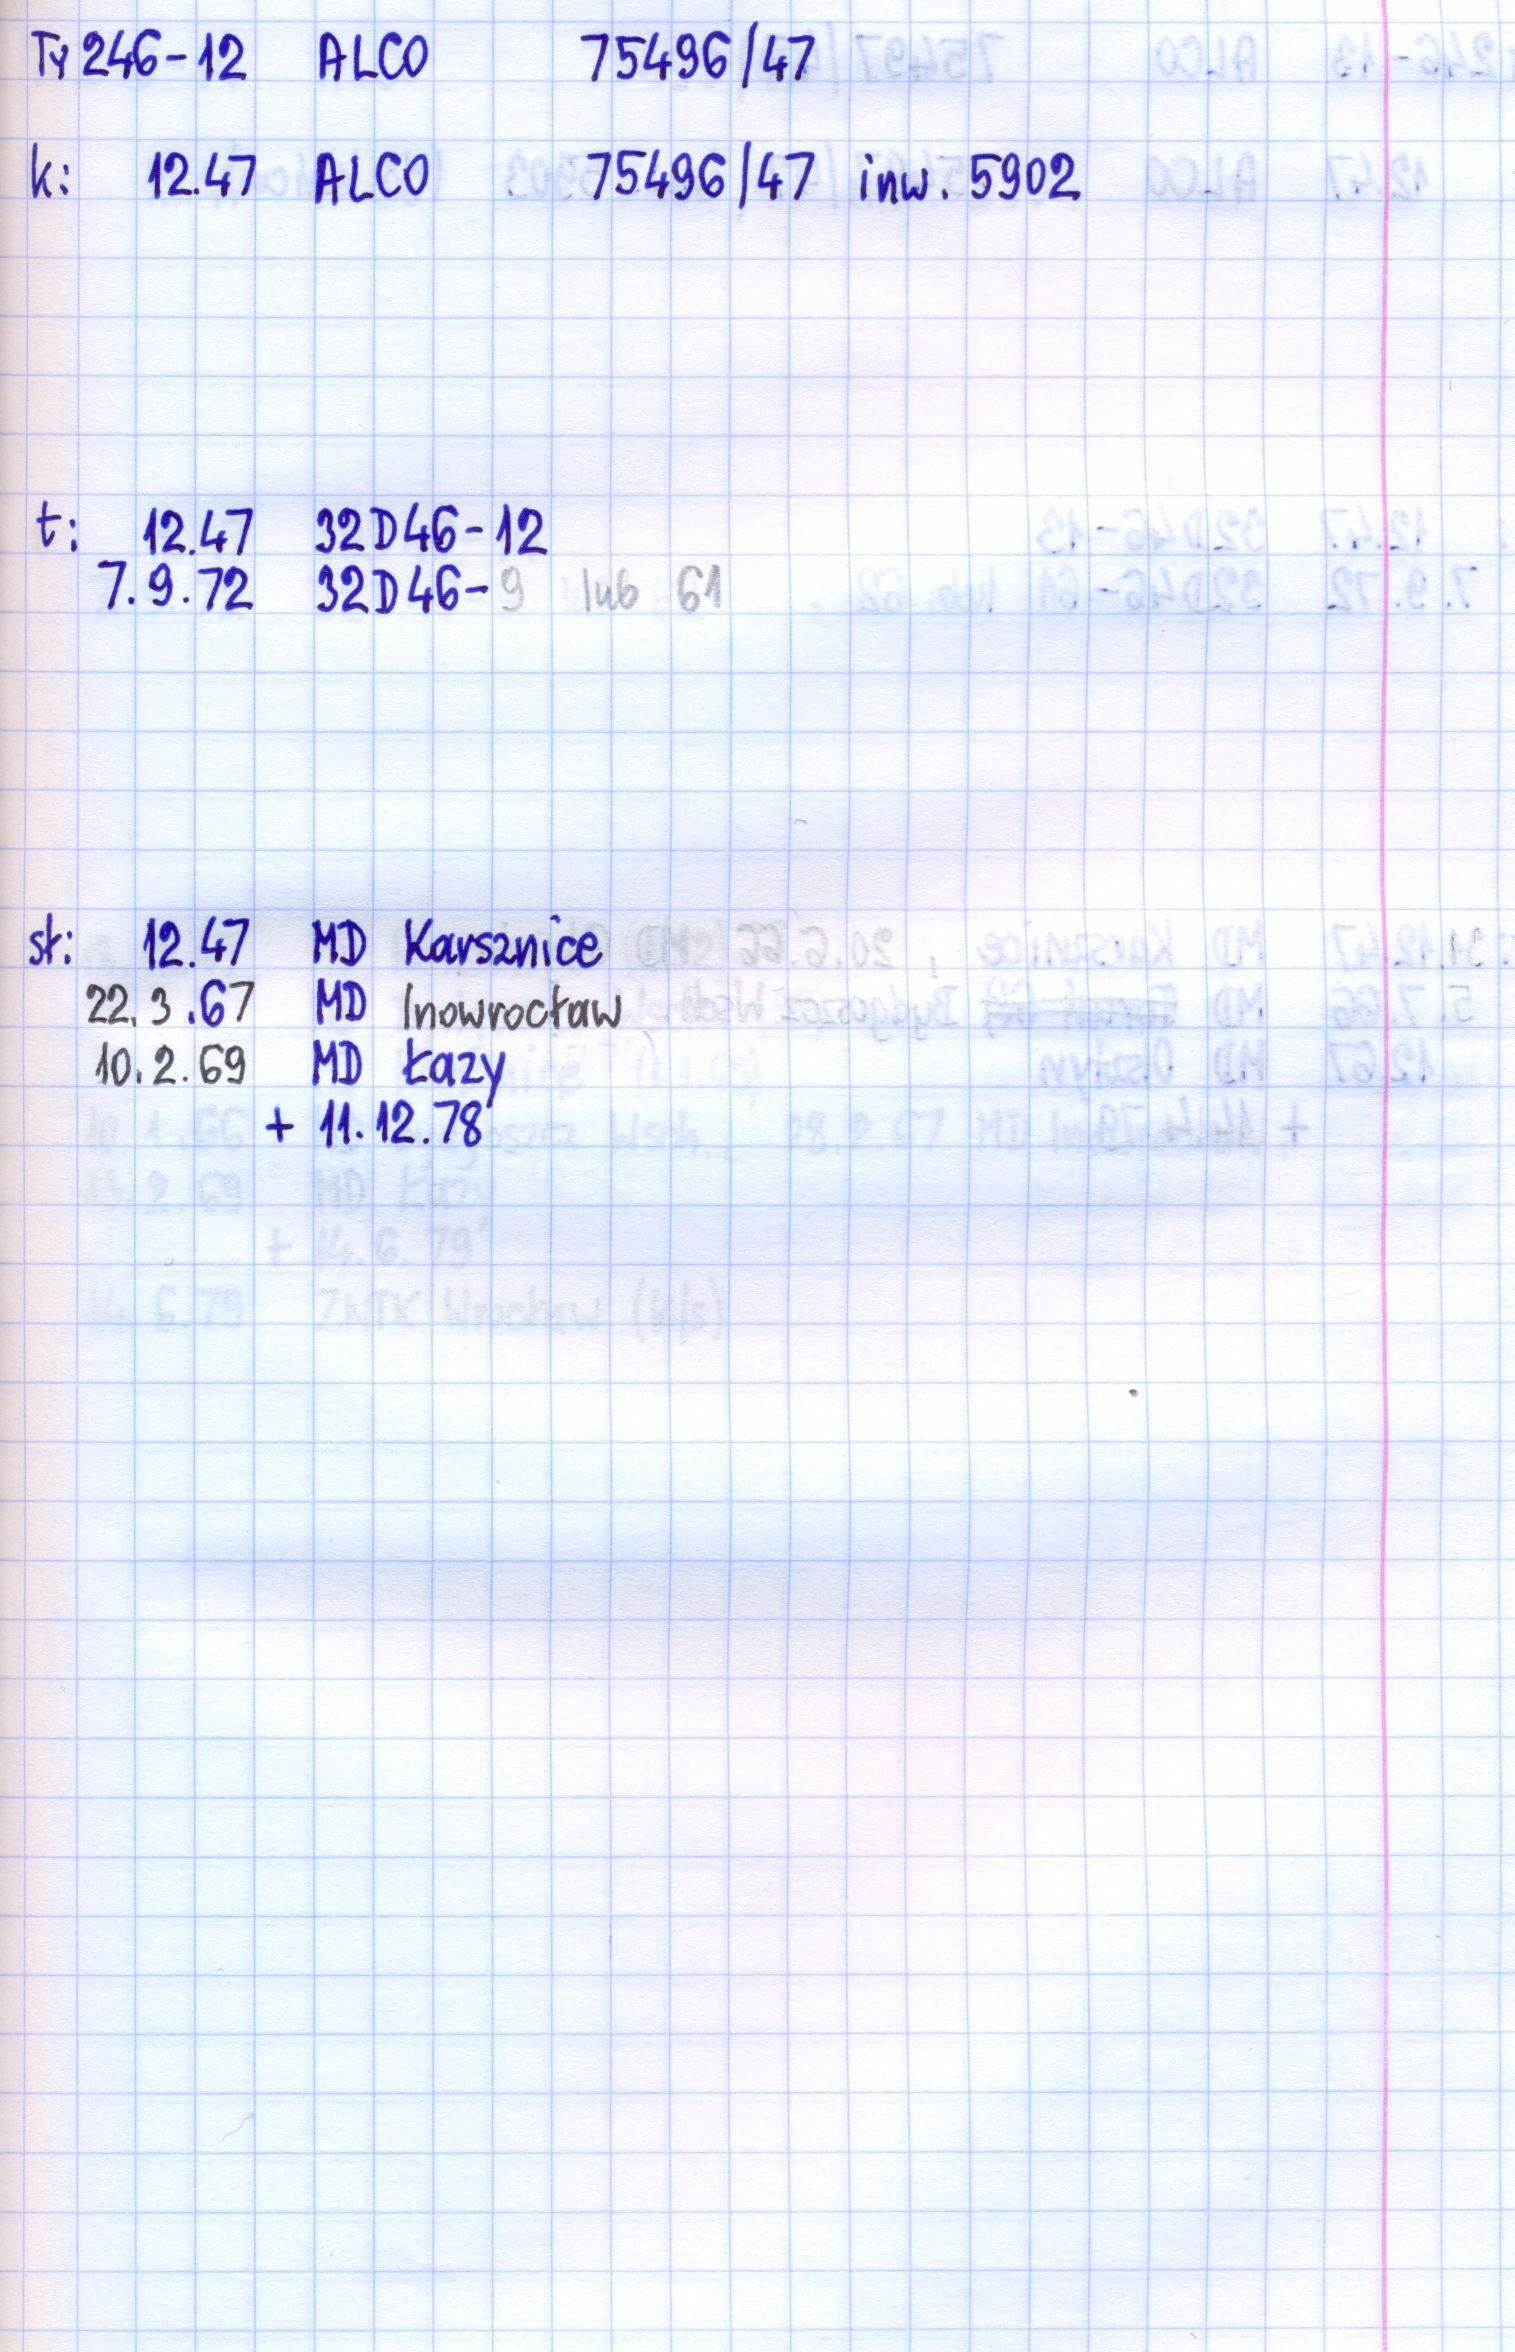 Ty 246-12 ALCO 75496/47
k: 12.47 ALCO 75496/47 inw. 5902
t: 12.47 32D46-12
7.9.72 32D46-9 lub 61
st: 12.47 MD Karsznice
22.3.67 MD Inowrocław
10.2.69 MD Łazy
+ 11.12.78